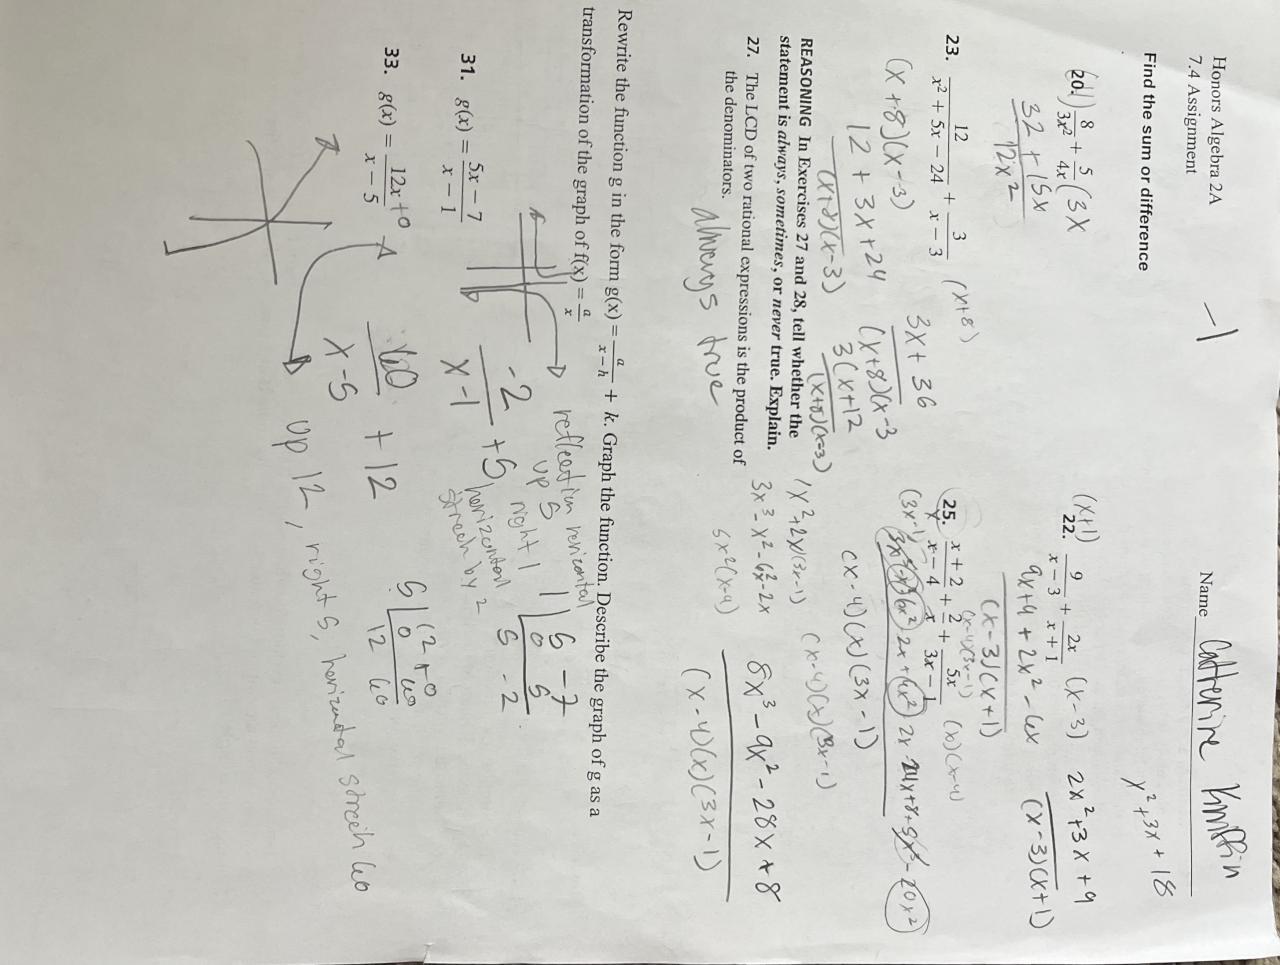 Honors Algebra 2A
7.4 Assignment
-1
Name Catherine
Find the sum or difference
20. 8/3x² + 5/4x (3x
32 + 15x
12x²
(x+1)
22. 9/(x-3) + 2x/(x+1) (x-3)
9x+9 + 2x² - 6x
(x-3)(x+1)
x²+3x+18
2x²+3x+9
(x-3)(x+1)
23. 12/(x² + 5x - 24) + 3/(x - 3) (x+8)
(x+8)(x-3)
12 + 3x+24
(x+8)(x-3)
3x+36
(x+8)(x-3
3(x+12
(x+8)(x-3)
25. (x + 2)/(x - 4) + 2/x + 5x/(3x - 1) (x)(x-4)
(x-4)(3x-1)
(3x-1)
(x-4)(x)(3x-1)
(x-4)(x)(3x-1)
3x³-x²-6x²-2x
5x²(x-4)
8x³-9x²-28x+8
(x-4)(x)(3x-1)
REASONING In Exercises 27 and 28, tell whether the
statement is always, sometimes, or never true. Explain.
27. The LCD of two rational expressions is the product of
the denominators.
always true
Rewrite the function g in the form g(x) = a/(x-h) + k. Graph the function. Describe the graph of g as a
transformation of the graph of f(x) = a/x
31. g(x) = (5x - 7)/(x - 1)
-2/(x-1) +5
reflection
up 5
right 1
horizontal
streach by 2
1 5 -7
0 5
5 -2
33. g(x) = (12x+0)/(x - 5)
60/(x-5) + 12
5 12 +0
0 60
12 60
up 12, right 5, horizontal streeh 60